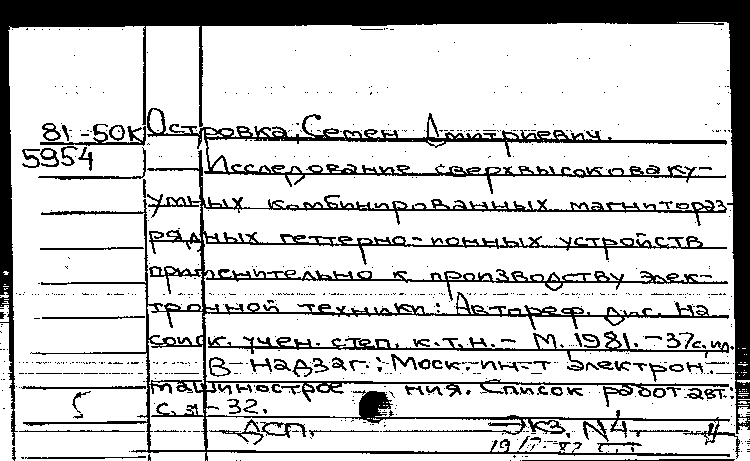 81-50к Островка, Семен Дмитриевич.
5954 Исследование сверхвысоковаку-
умных комбинированных магнитораз-
рядных геттерно-ионных устройств
применительно к производству элек-
тронной техники: Автореф. дис. на
соиск. учен. степ. к.т.н. - М. 1981. - 37с, ил.
В надзаг.: Моск. ин-т электрон.
машинострое ния. Список работ авт.:
с. 31-32.
ДСП. Экз. N4.